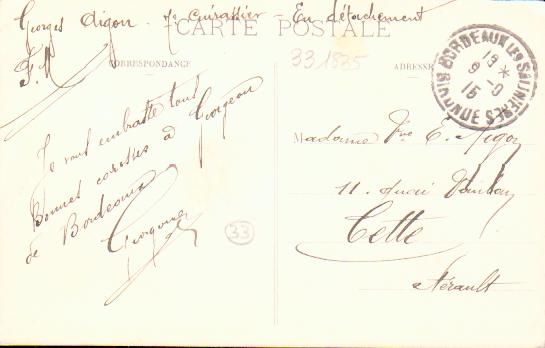 Georges Aigon. 7e Cuirassier - En détachement
F. M
CARTE POSTALE
CORRESPONDANCE
ADRESSE
331835
BORDEAUX LES SALINIERES
13 *
9 -0
15
GIRONDE
Je vous embrasse tous
Bonnes caresses à Georgeon
de Bordeaux
33
Madame Vve E. Aigon
11. Quai Vauban
Cette
Hérault